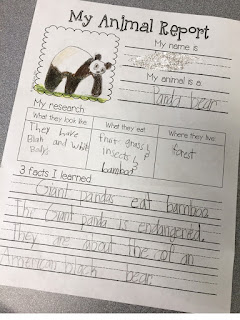 My Animal Report
My name is
My animal is a
Panda bear
My research
What they look like
What they eat
Where they live
They have
Blah and whit
Bodys
insects
bamboo
forest
3 facts I learned
Giant pandas eat bamboo.
The Giant panda is endangered.
They are about the of an
American black bear.